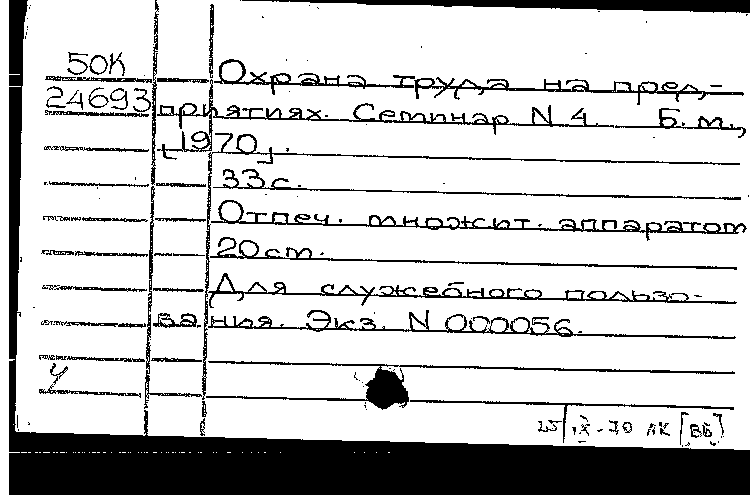 50К
24693
Охрана труда на пред-
приятиях. Семинар N 4. Б.м.,
[1970].
33с.
Отпеч. множит. аппаратом
20см.
Для служебного пользо-
вания. Экз. N 000056.
У
25/IX-70 ЛК [ВБ]